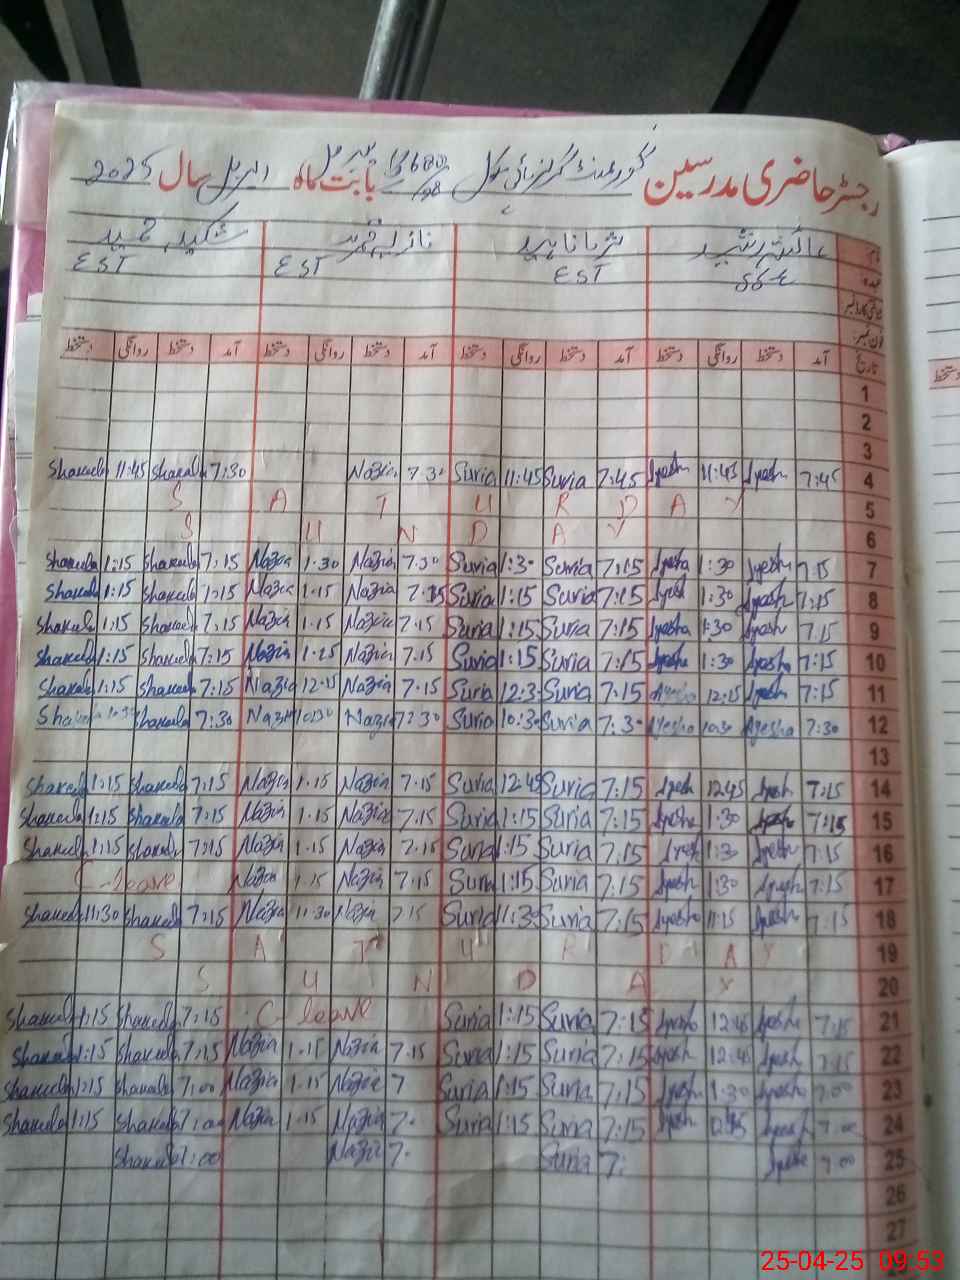 رجسٹر حاضری مدرسین گورنمنٹ گرلز ہائی سکول بابت ماہ اپریل سال 2025
نام عائشہ رشید ثریا ناہید نازیہ شکیلہ حمید
عہدہ EST EST EST
تاریخ آمد دستخط روانگی دستخط آمد دستخط روانگی دستخط آمد دستخط روانگی دستخط آمد دستخط روانگی دستخط
1
2
3
Shakeela 11:45 Shakeela 7:30 Nazia 7.30 Suria 11:45 Suria 7:45 Ayesh 11:45 Ayesh 7:45 4
S A T U R D A Y 5
S U N D A Y 6
Shakeela 1:15 Shakeela 7:15 Nazia 1.30 Nazia 7.30 Suria 1:30 Suria 7:15 Ayesha 1:30 Ayesha 7:15 7
Shakeela 1:15 Shakeela 7:15 Nazia 1.15 Nazia 7.15 Suria 1:15 Suria 7:15 Ayesh 1:30 Ayesh 7:15 8
Shakeela 1:15 Shakeela 7:15 Nazia 1.15 Nazia 7.15 Suria 1:15 Suria 7:15 Ayesha 1:30 Ayesh 7:15 9
Shakeela 1:15 Shakeela 7:15 Nazia 1.15 Nazia 7.15 Suria 1:15 Suria 7:15 Ayesha 1:30 Ayesha 7:15 10
Shakeela 1:15 Shakeela 7:15 Nazia 12.15 Nazia 7.15 Suria 12:3 Suria 7:15 Ayesha 12:15 Ayesh 7:15 11
Shakeela 10:30 Shakeela 7:30 Nazia 10:30 Nazia 7:30 Suria 10:3 Suria 7:30 Ayesha 10:30 Ayesha 7:30 12
13
Shakeela 1:15 Shakeela 7:15 Nazia 1.15 Nazia 7.15 Suria 12:45 Suria 7:15 Ayesh 12:45 Ayesh 7:15 14
Shakeela 1:15 Shakeela 7:15 Nazia 1.15 Nazia 7.15 Suria 1:15 Suria 7:15 Ayesha 1:30 Ayesh 7:15 15
Shakeela 1:15 Shakeela 7:15 Nazia 1.15 Nazia 7.15 Suria 1:15 Suria 7:15 Ayesh 1:30 Ayesh 7:15 16
C-leave Nazia 1.15 Nazia 7.15 Suria 1:15 Suria 7:15 Ayesh 1:30 Ayesh 7:15 17
Shakeela 11:30 Shakeela 7:15 Nazia 11:30 Nazia 7.15 Suria 11:30 Suria 7:15 Ayesha 11:15 Ayesh 7:15 18
S A T U R D A Y 19
S U N D A Y 20
Shakeela 1:15 Shakeela 7:15 C leave Suria 1:15 Suria 7:15 Ayesh 12:45 Ayesh 7:15 21
Shakeela 1:15 Shakeela 7:15 Nazia 1.15 Nazia 7.15 Suria 1:15 Suria 7:15 Ayesh 12:45 Ayesh 7:15 22
Shakeela 1:15 Shakeela 7:00 Nazia 1.15 Nazia 7 Suria 1:15 Suria 7:15 Ayesh 1:30 Ayesh 7:00 23
Shakeela 1:15 Shakeela 7:00 Nazia 1.15 Nazia 7. Suria 1:15 Suria 7:15 Ayesh 12:45 Ayesh 7:00 24
Shakeela 7:00 Nazia 7. Suria 7: Ayesha 7:00 25
26
27
25-04-25 09:53